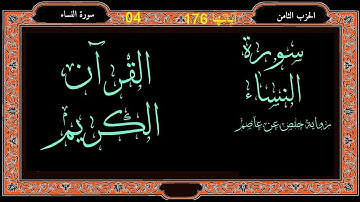 الحزب الثامن
آياتها 176
04
سورة النساء
سورة
النساء
رواية حفص عن عاصم
القرآن
الكريم